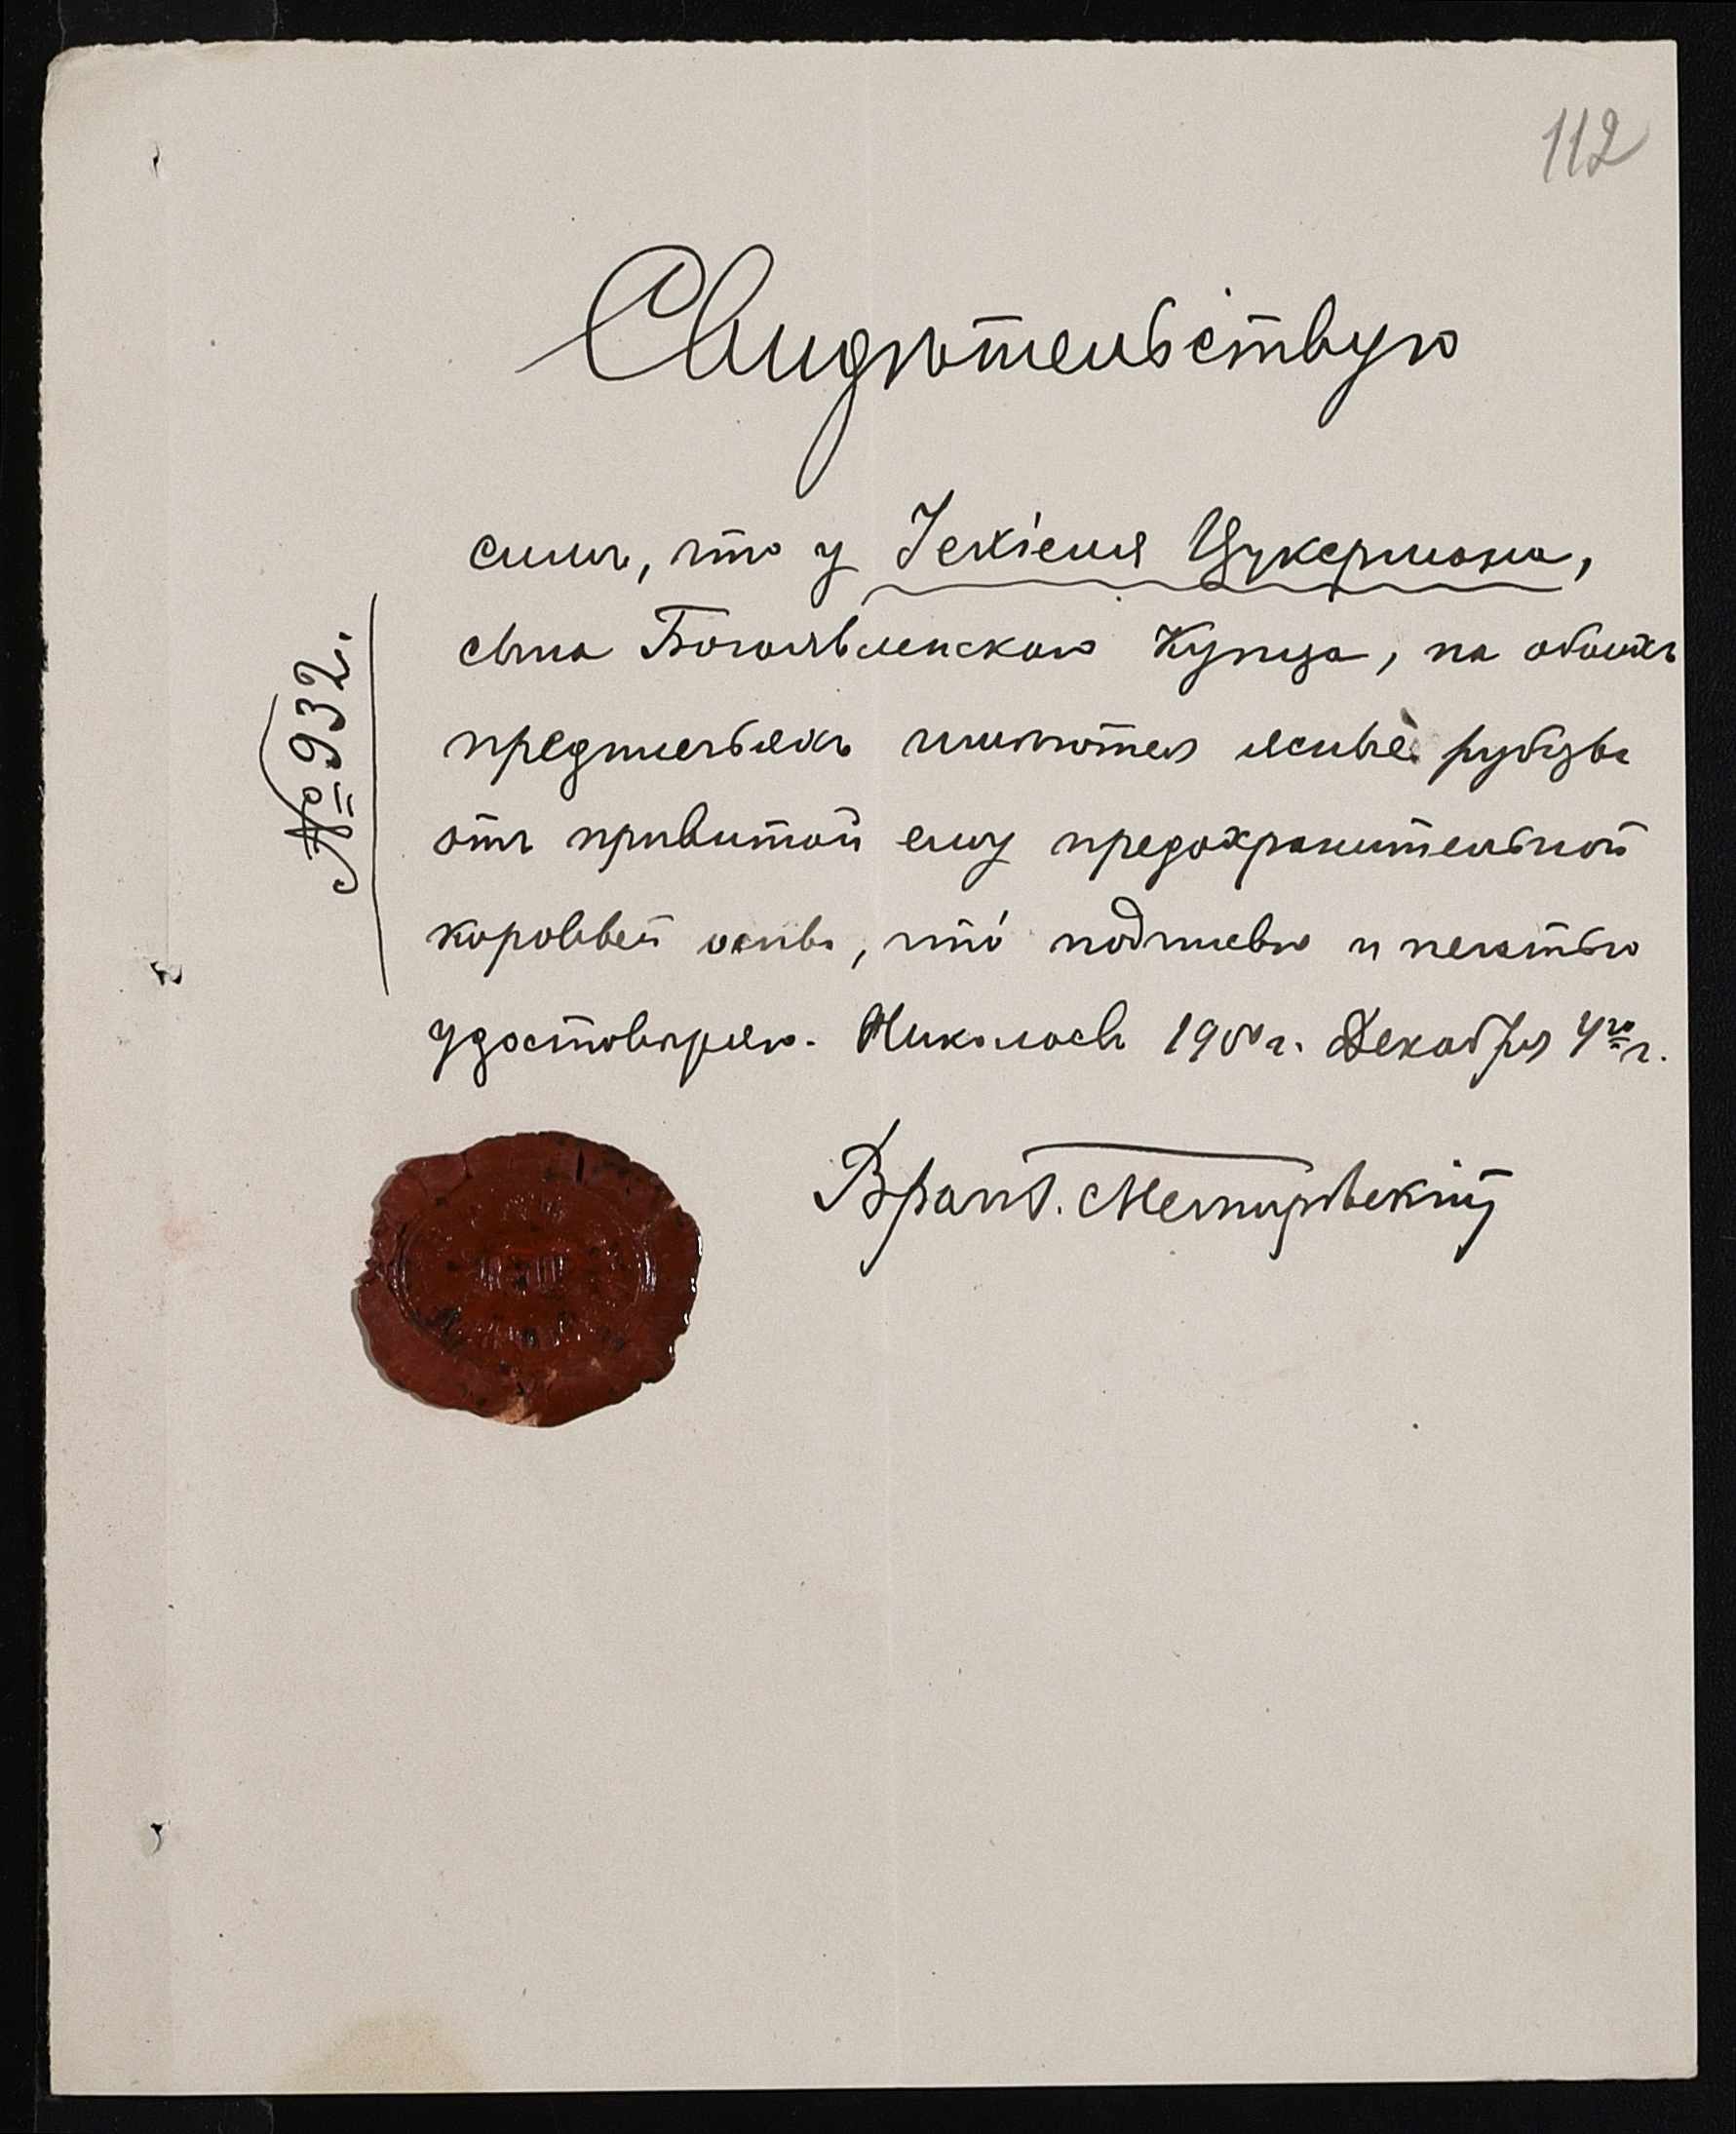 112
Свидѣтельствую
симъ, что у Іехіеля Цукермана,
сына Богоявленскаго Купца, на обоихъ
предплечьяхъ имѣются ясные рубцы
отъ привитой ему предохранительной
коровьей оспы, что́ подписью и печатью
удостовѣряю. Николаевъ 1900 г. Декабря 4го г.
Врачъ.
№ 932.